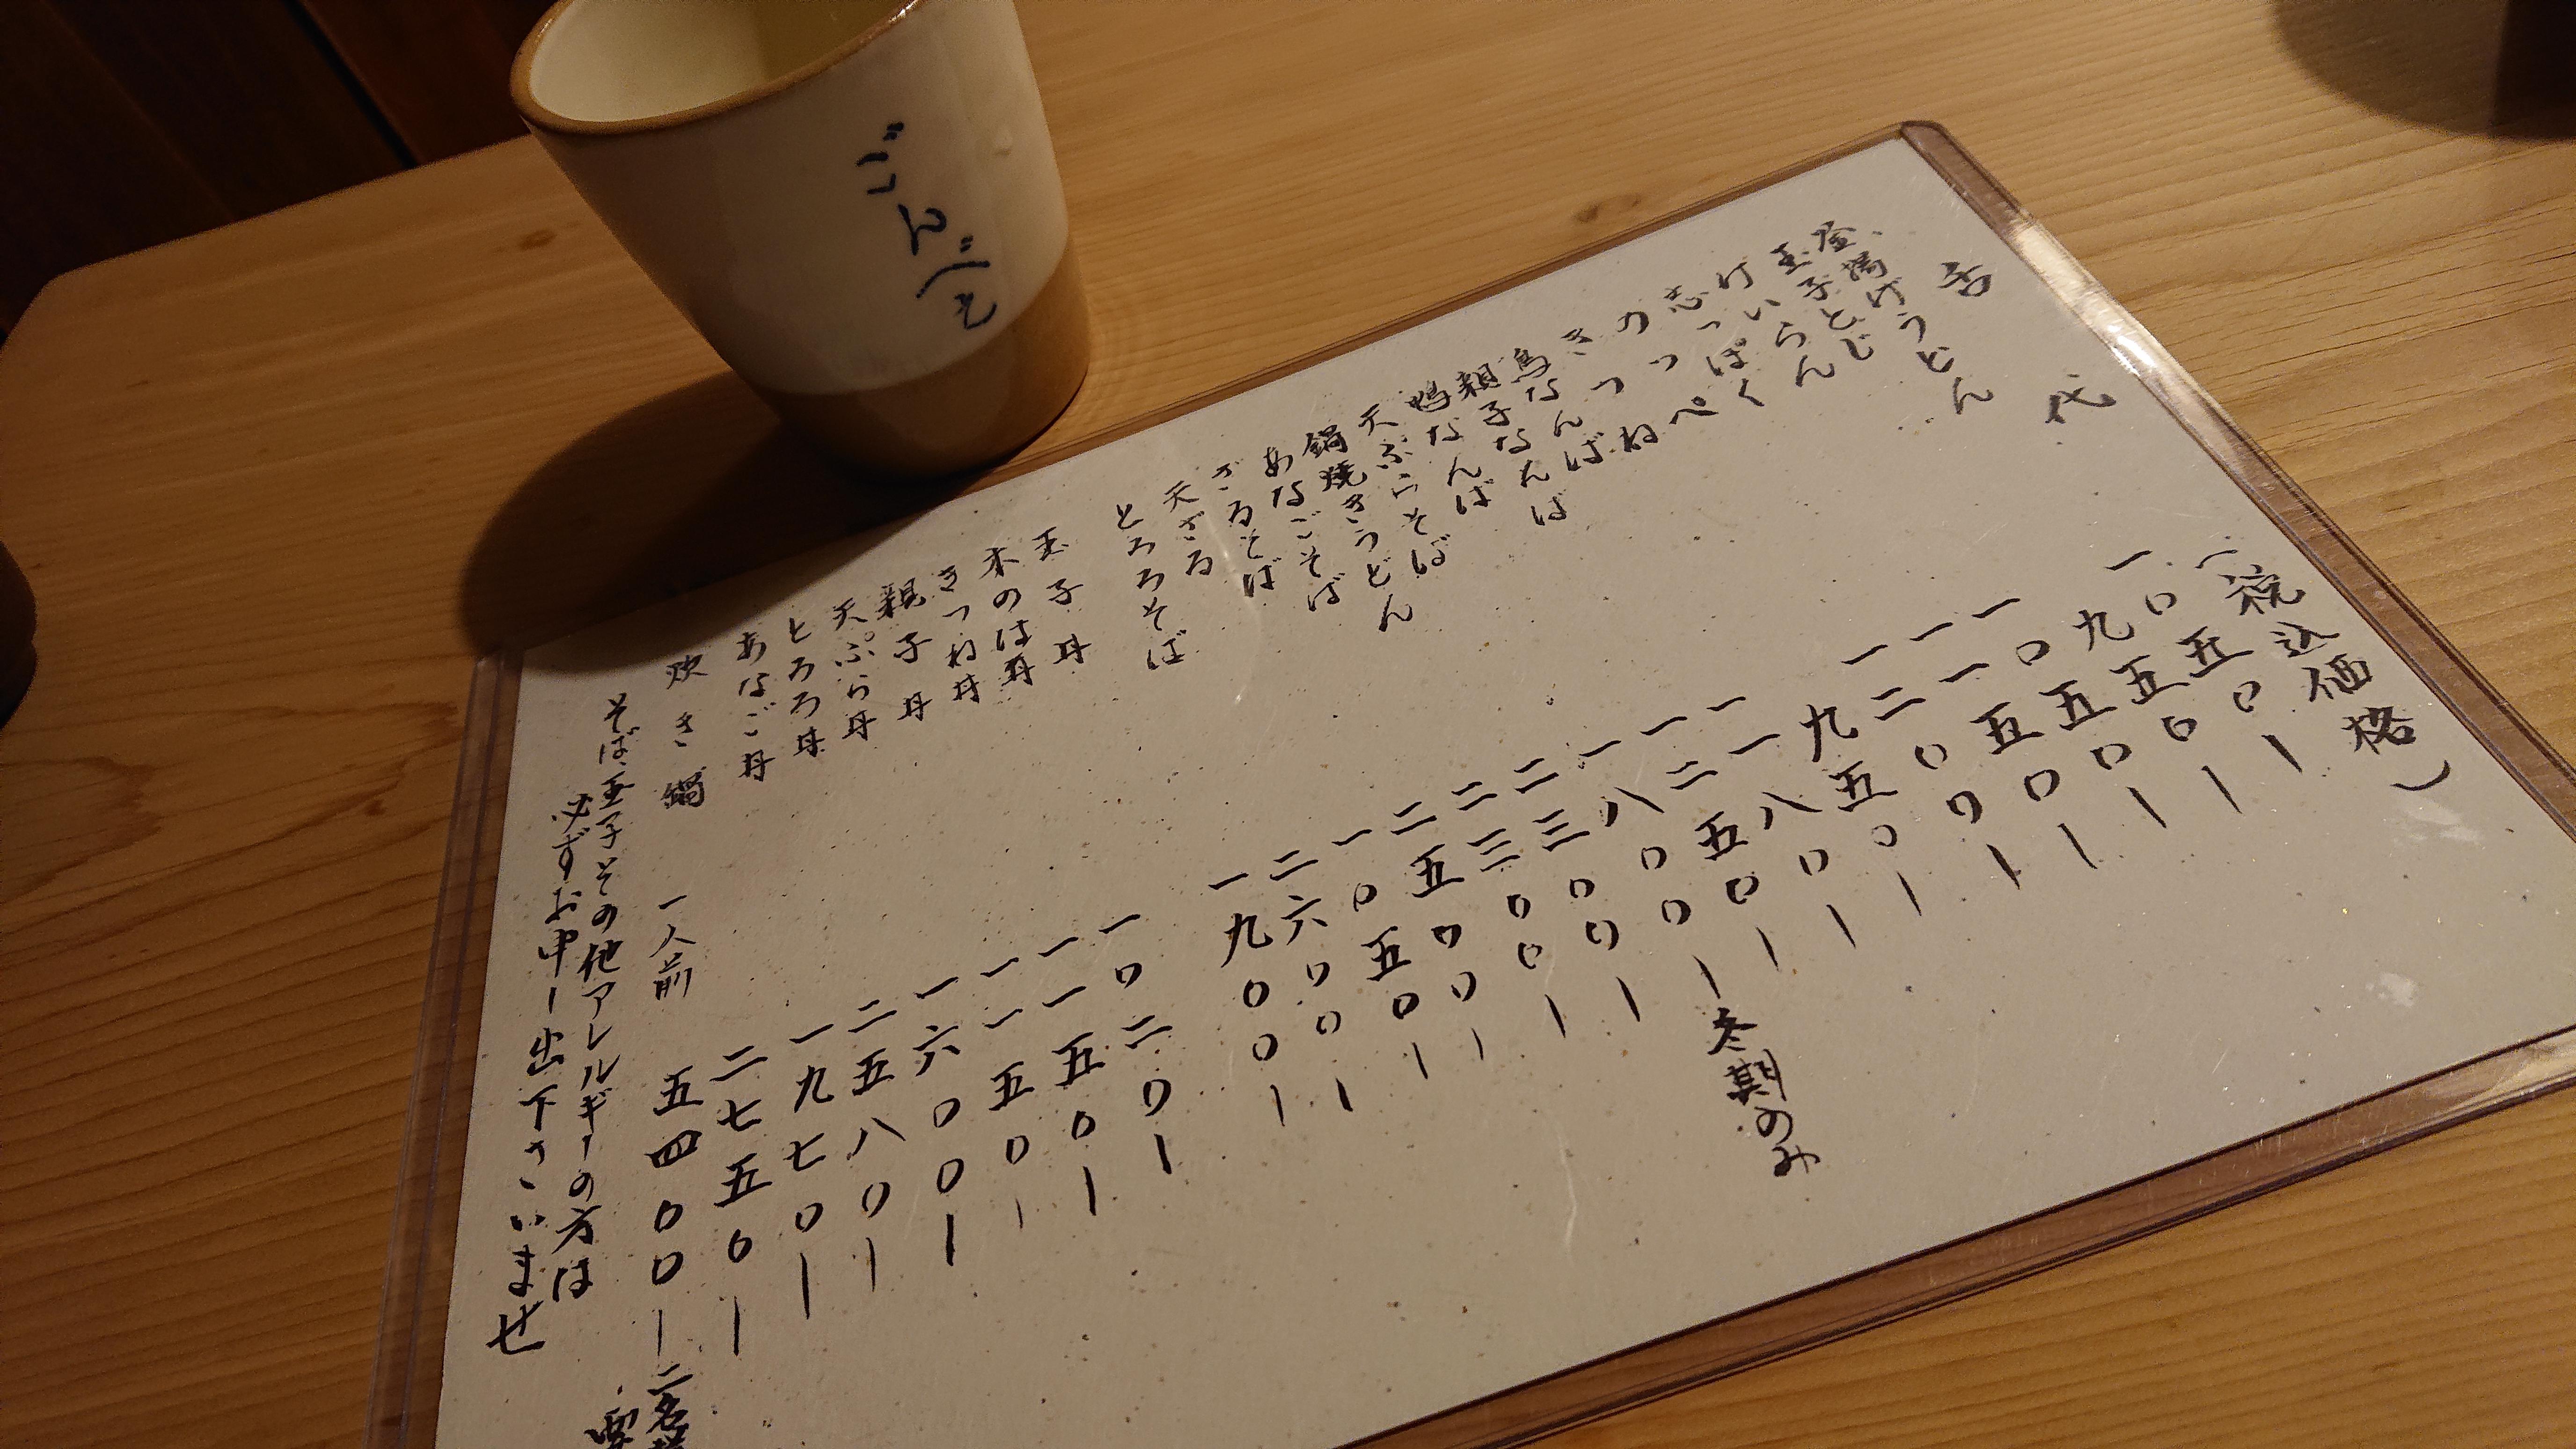 ごんべえ
舌代 (税込価格)
釜揚げうどん 一〇五〇ー
玉子とじ 九五〇ー
けいらん 一〇五〇ー
志っぽく 一一五〇ー
のっぺ 一二〇〇ー
きつね 九五〇ー
鳥なんば 一一八〇ー
親子なんば 一二五〇ー
鴨なんば 一八〇〇ー冬期のみ
天ぷらそば 二三〇〇ー
鍋焼きうどん 二三〇〇ー
あなごそば 二五〇〇ー
ざるそば 一〇五〇ー
天ざる 二六〇〇ー
とろろそば 一九〇〇ー
玉子丼 一〇二〇ー
木のは丼 一一五〇ー
きつね丼 一一五〇ー
親子丼 一六〇〇ー
天ぷら丼 二五八〇ー
とろろ丼 一九七〇ー
あなご丼 二七五〇ー
炊き鍋 一人前 五四〇〇ー二名様
そば、玉子その他アレルギーの方は
必ずお申し出下さいませ